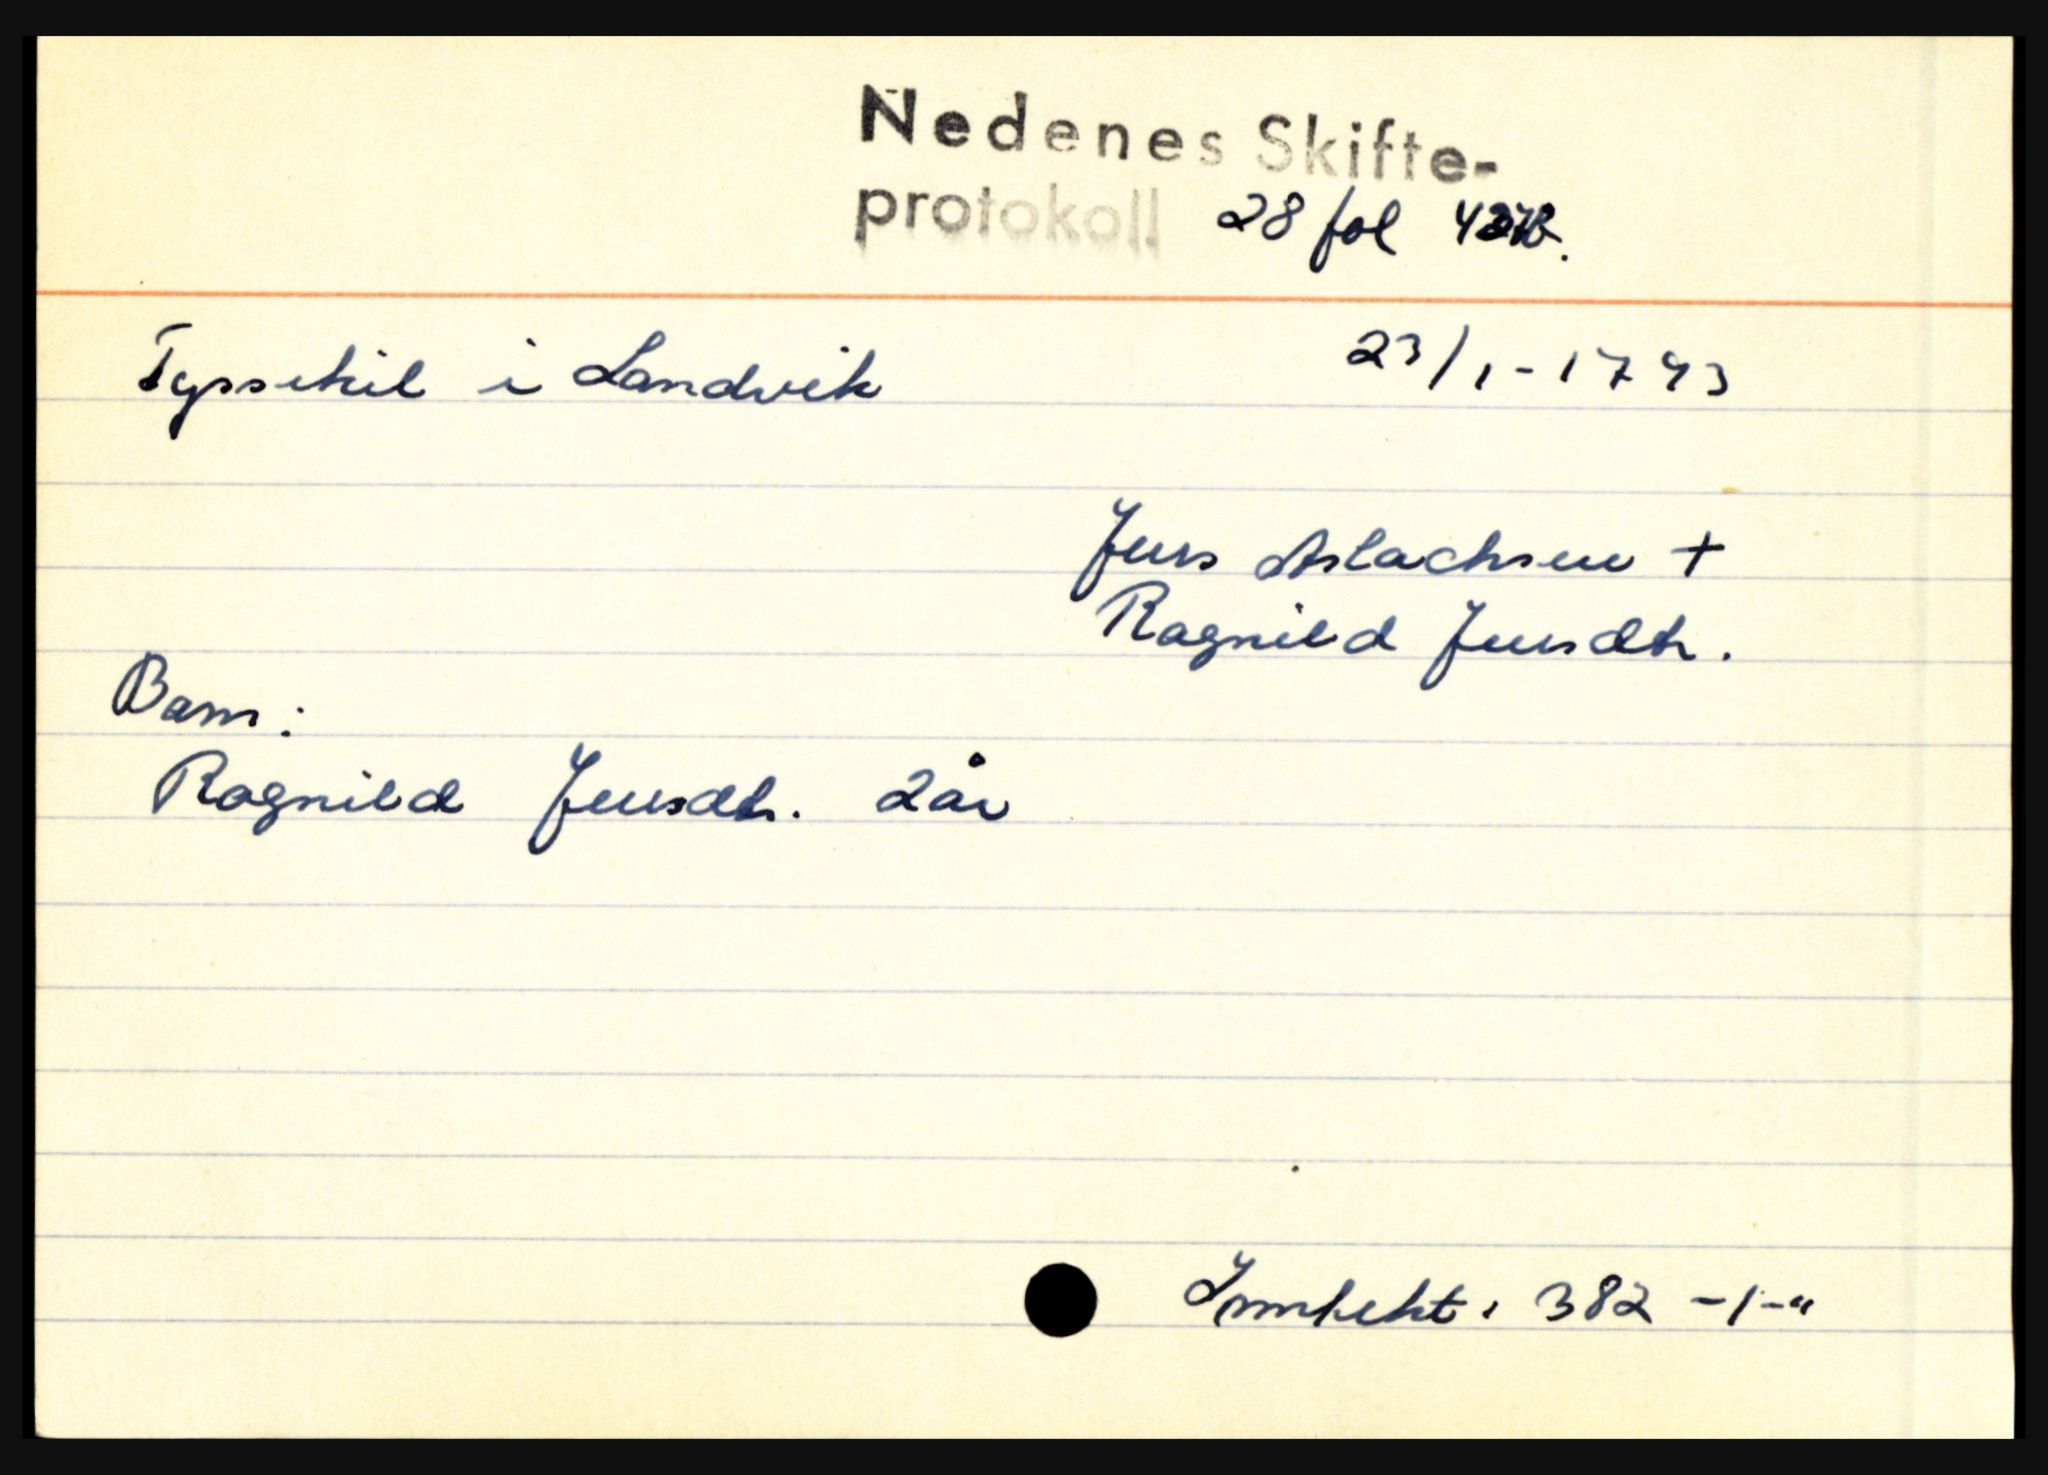 Nedenes Skifte-
protokoll 28 fol
Tyssekil i Landvik 23/1-1793
Jens Aslachsen +
Ragnild Jensdtr.
Barn:
Ragnild Jensdtr. 2 år
Inntekt: 382 -1-"